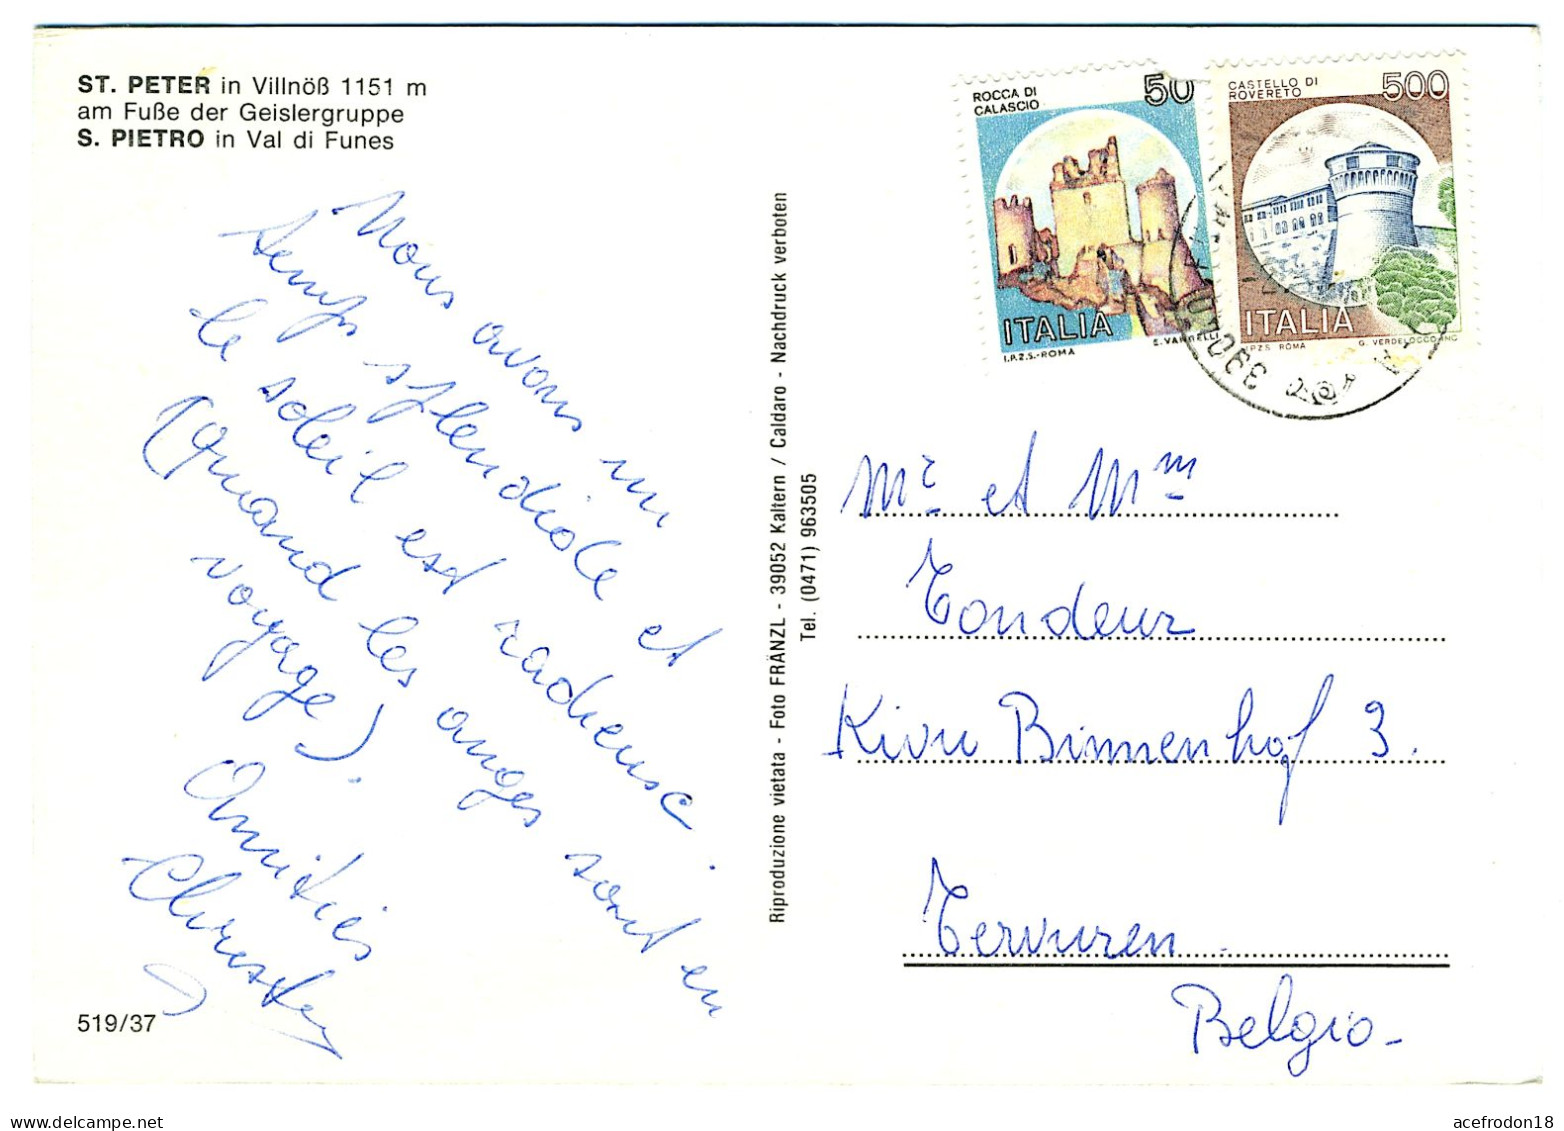 ST. PETER in Villnöß 1151 m
am Fuße der Geislergruppe
S. PIETRO in Val di Funes
Nous avons un
temps splendide et
le soleil est radieuse.
(Quand les anges sont en
voyage).
Amitiés
519/37
Riproduzione vietata - Foto FRÄNZL - 39052 Kaltern / Caldaro - Nachdruck verboten
Tel. (0471) 963505
ROCCA DI
CALASCIO
50
ITALIA
I.P.Z.S.-ROMA
E. VANGELLI
CASTELLO DI
ROVERETO
500
ITALIA
I.P.Z.S. ROMA
G. VERDELOCCO INC.
Mr et Mme
Tondeur
Kivu Binnenhof 3.
Tervuren.
Belgio-
www.delcampe.net
acefrodon18